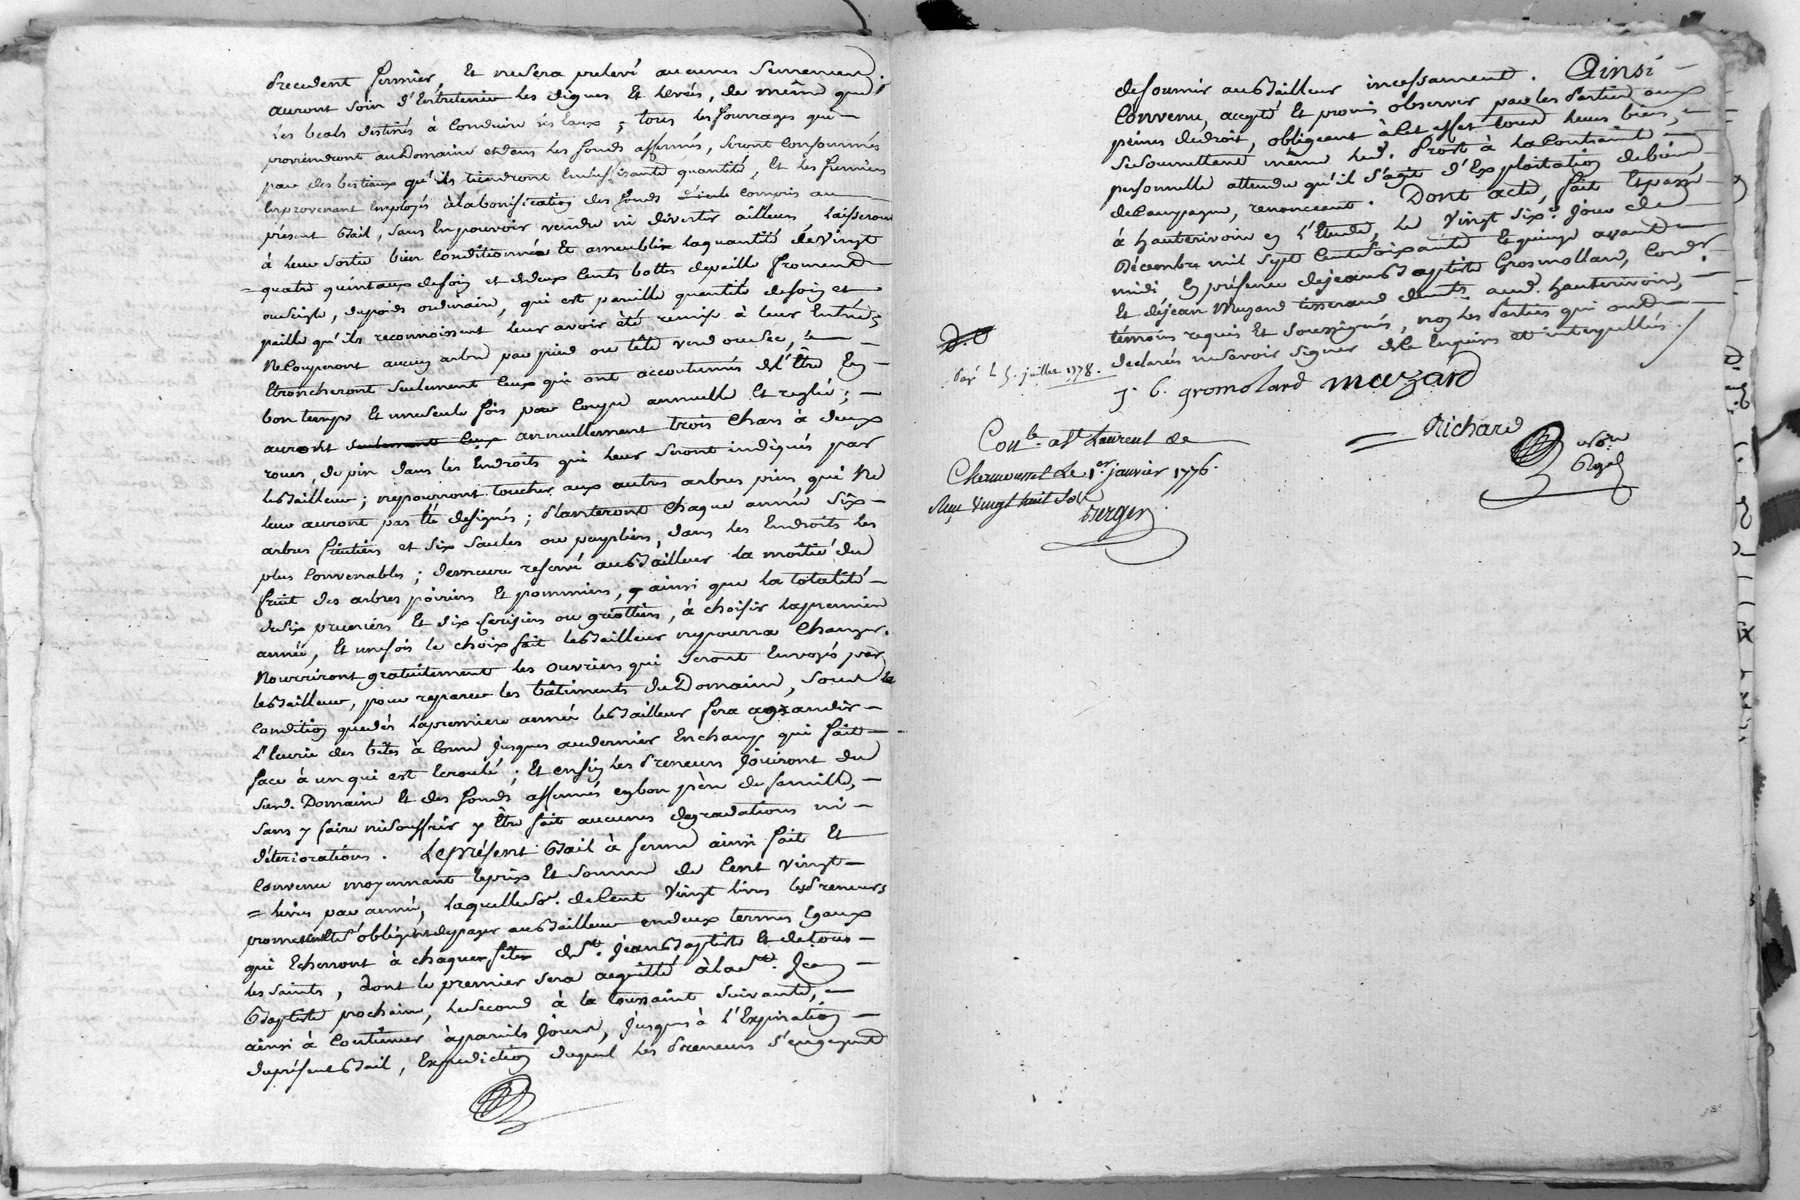 précedent fermier, et ne sera prelevé aucunes semences;
auront soin d'Entretenir les digues et levées, de même que
les beals destinés à Conduire les Eaux; tous les fourrages qui
proviendront au Domaine et dans les fonds affermés, seront Consommés
par des bestiaux qu'ils tiendront En suffisante quantité, Et les fumiers
En provenant Employés à la bonification des fonds comris au
présent Bail, sans En pouvoir vendre ni divertir ailleurs, Laisseront
à leur sortie bien Conditionnée Et la quantité de Vingt
= quatre quintaux de foin et de deux Cents bottes de paille froment
ou seigle, du poids ordinaire, qui est pareille quantité de foin et
paille qu'ils reconnoissent leur avoir été remise à leur Entrée;
Ne Couperont aucun arbre par pied ou tête verd ou sec, &
Ebrancheront seulement Ceux qui ont accoutumés de l'être En
bon temps Et une seule fois par Coupe annuelle Et reglée;
auront annuellement trois Chars à deux
roues, de pin dans les Endroits qui leur seront indiqués par
le Bailleur; ne pourront toucher aux autres arbres pins, qui Ne
leur auront pas été designés; Planteront Chaque année six
arbres fruitiers et six saules ou peupliers, dans les Endroits les
plus Convenables; demeure reservé au Bailleur la moitié du
fruit des arbres poiriers Et pommiers, ainsi que la totalité
de six pruniers Et six Cerisiers ou griottiers, à choisir la premiere
année, Et une fois le choix fait le Bailleur ne pourra Changer.
Nourriront gratuitement les ouvriers qui seront Envoyés par
le Bailleur, pour reparer les bâtiments du Domaine, sous la
Condition que dès la premiere année le Bailleur fera agrandir
l'Ecurie des bêtes à Corne jusques au dernier qui fait
face à un qui est Ecroulé; Et enfin les Preneurs jouiront du
susd. Domaine Et des fonds affermés en bon père de famille,
sans y faire ni souffrir y Etre fait aucunes degradations ni
déteriorations. Le présent Bail à ferme ainsi fait Et
Convenu moyennant le prix Et somme de Cent Vingt
= livres par année, laquelle se. de Cent Vingt livres les Preneurs
promettent s'obligent de payer au Bailleur en deux termes Egaux
qui Echeront à chaques fêtes de St. Jean Baptiste Et de tous
les saints, dont le premier sera acquitté à la St. Jean
Baptiste prochaine, le second à la toussaint suivante, &
ainsi à Continuer à pareils jours, jusques à l'Expiration
du présent Bail, Expedition duquel les Preneurs s'engagent
de fournir au Bailleur incessament. Ainsi
Convenu, accepté Et promis observer par les Parties aux
peines de droit, obligeant à Cet effet tous leurs biens, &
se soumettent même led. Prost à la Contrainte
personnelle attendu qu'il s'agit d'Exploitation de biens
de Campagne, renonceant. Dont acte, fait Et passé
à hauterivoire en l'Etude, le Vingt six.e Jour de
Décembre mil sept Cent soixante Et quinze avant
midi En présence de jean Baptiste Grosmollard, Cond.r
Et de jean Mazard tisserand demts. aud. hauterivoire,
témoins requis Et soussignés, non les Parties qui ont
declarés ne savoir signer de ce Enquises et interpellés. /
payé le 5. juillet 1778.
j. b. gromolard mazard
Richard
no.re
Royal
Con.lé à St Laurent de
Chamousset Le 1.er janvier 1776.
Reçu Vingt huit sols
Berger